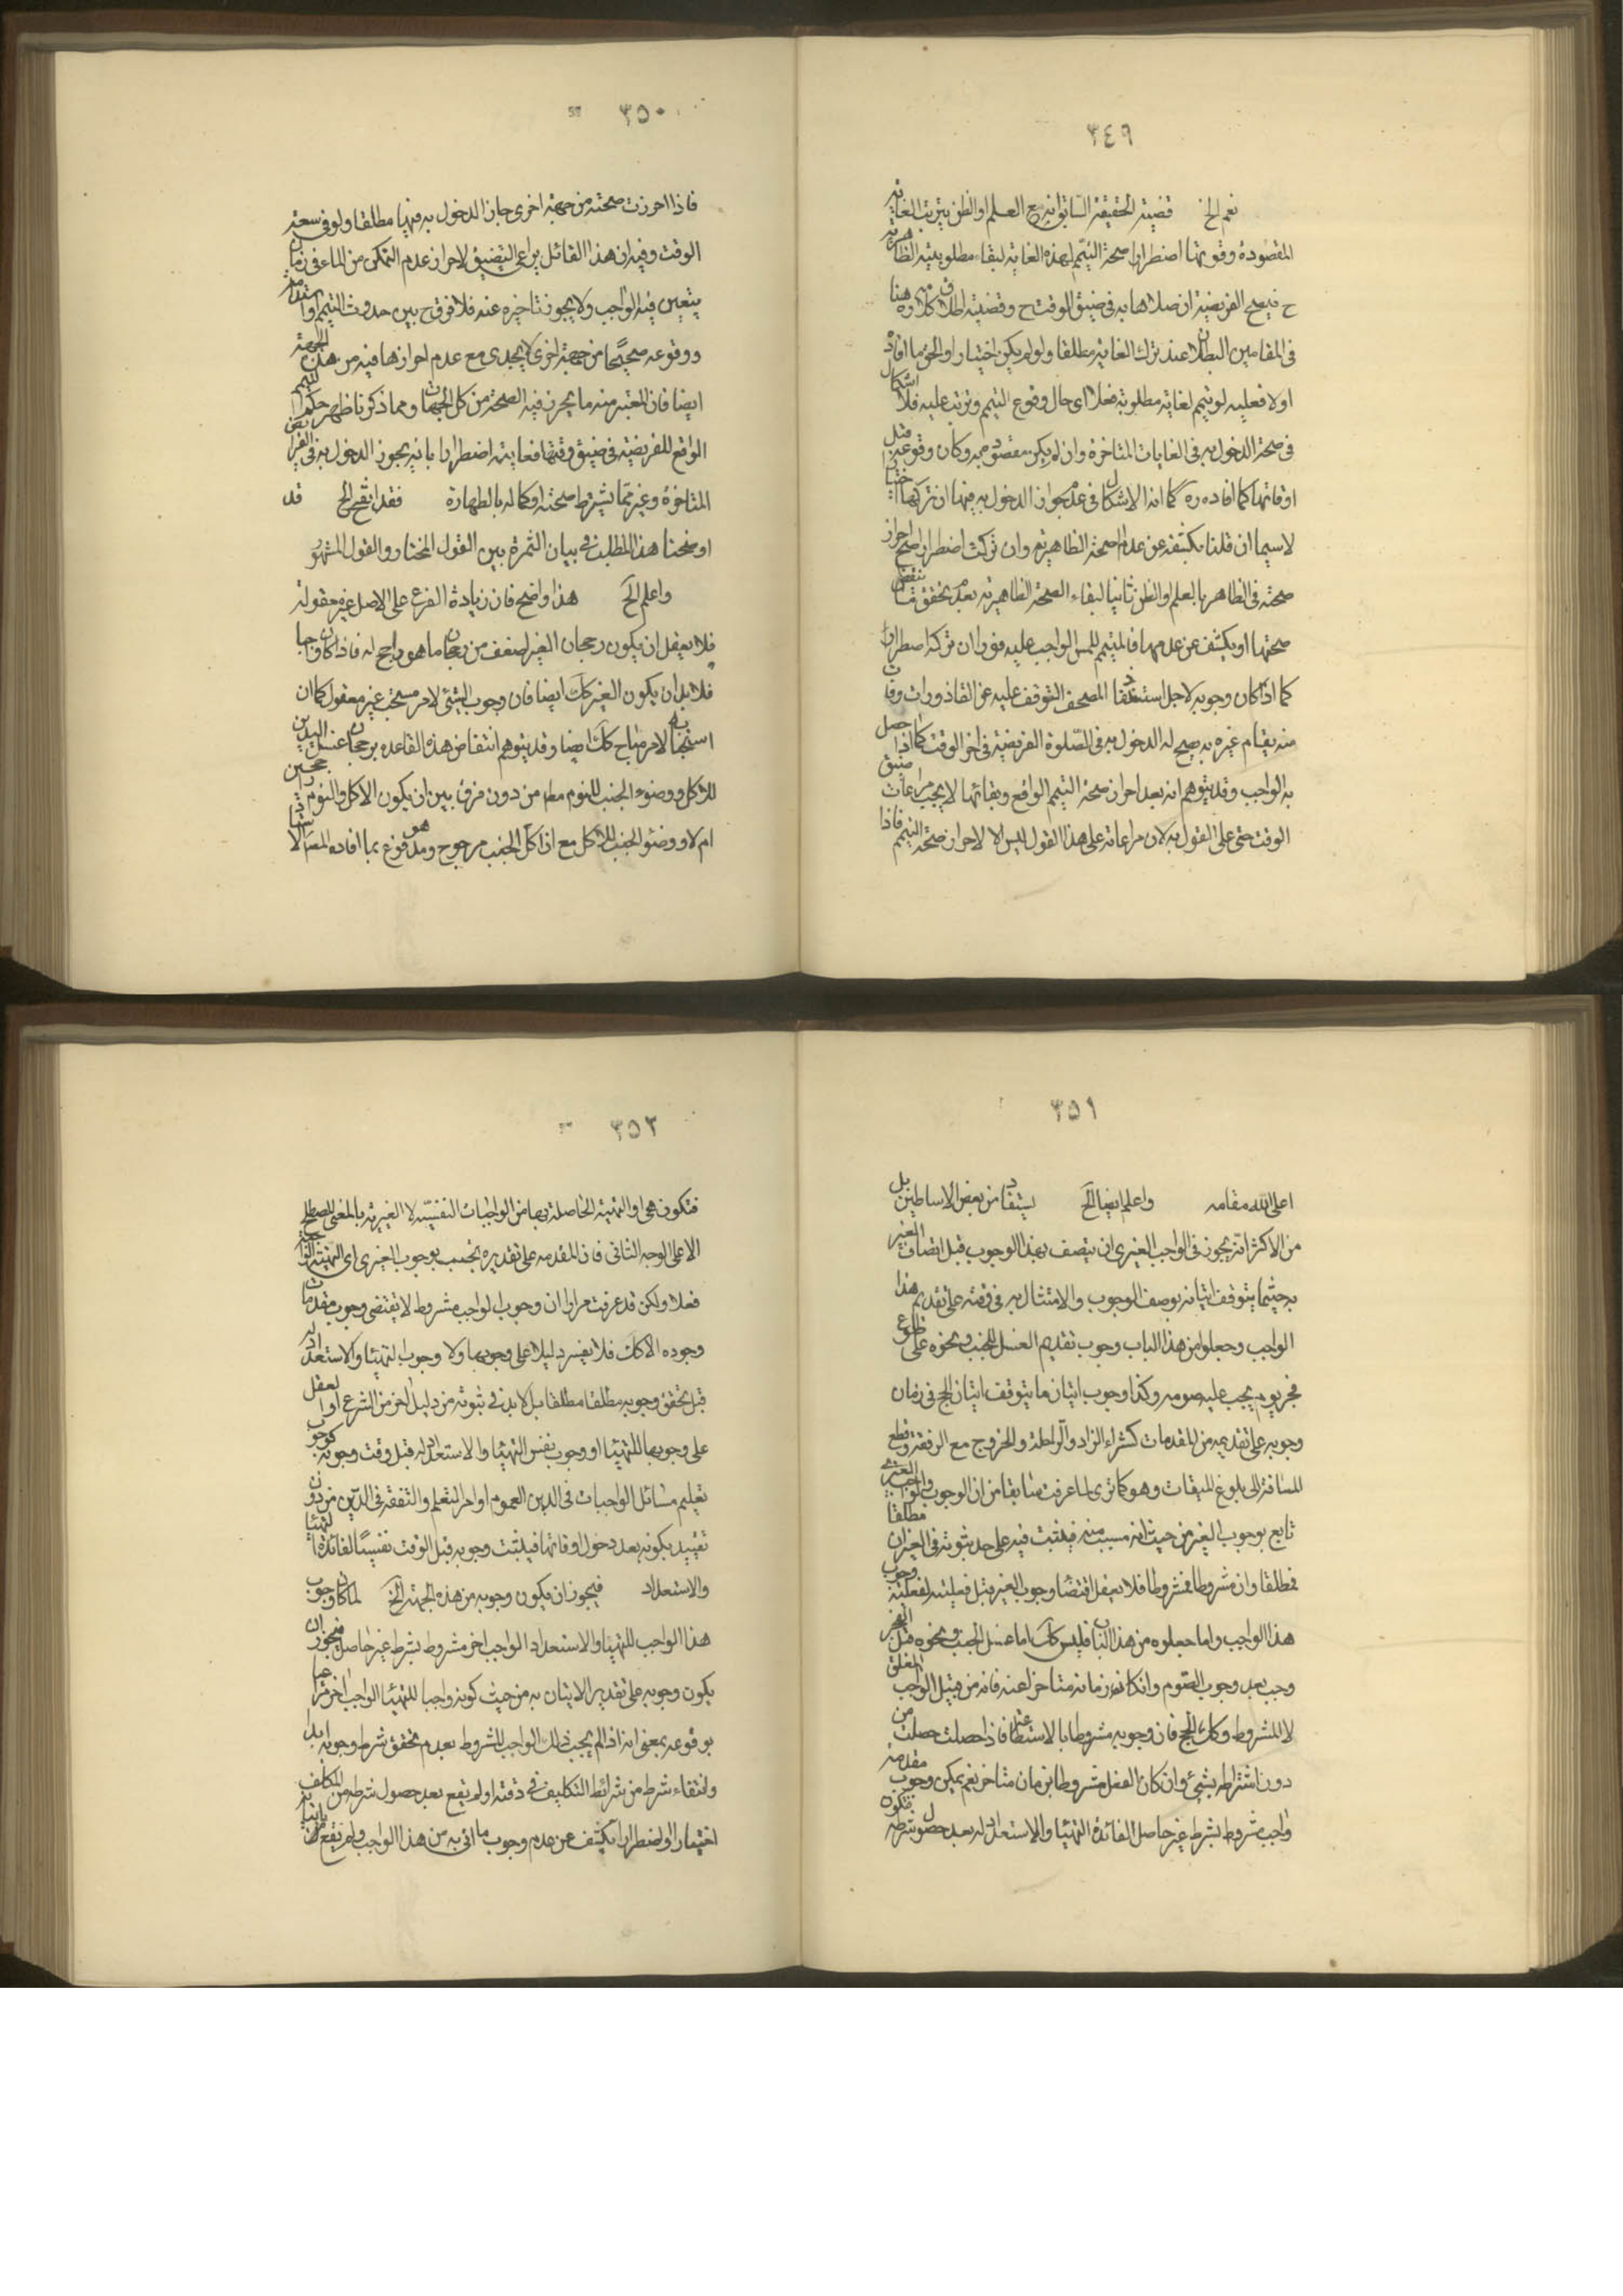 ٣٤٩
نعم الخ قضيته الحقيقة السابق انه مع العلم او الظن بترتب الغاية
المقصودة وفوتها اضطرارا صحة التيمم لهذه الغاية لبقاء مطلوبيته الظاهرية
ح فيصح الفريضة ان صلاها به في ضيق الوقت ح وقضيته اطلاق كلامه ره هنا
في المقامين البطلان عند ترك الغاية مطلقا ولو لم يكن اختيارا والحق ما افاده
اولا فعليه لو تيمم لغاية مطلوبة فعلا اى حال وقوع التيمم وترتبه عليه فلا اشكال
في صحة الدخول به في الغايات المتاخرة وان لم يكن مقصودة وكان وقوعه قبل
اوقاتها كما افاده ره كما انه لا اشكال في عدم جواز الدخول به فيها ان تركها اختيارا
لا سيما ان قلنا بكشفه عن عدم صحته الظاهرية وان تركت اضطرارا صح احراز
صحته في الظاهر بالعلم او الظن ثانيا لبقاء الصحة الظاهرية بعد تحقق
صحتها او يكشف عن عدمها فالمتيمم للمس الواجب عليه فورا ان تركه اضطرارا
كما اذا كان وجوبه لاجل استنقاذ المصحف المتوقف عليه عن القاذورات وفات
منه بقيام غيره به يصح له الدخول به في الصلوة الفريضة في اخر الوقت كما اذا حصل
به الواجب وقد يتوهم انه بعد احراز صحة التيمم الواقع وبقائها لا يجب مراعات ضيق
الوقت حتى على القول به لان مراعاته على هذا القول ليس الا لاحراز صحة التيمم فاذا
٣٥٠
فاذا احرزت صحته من جهة اخرى جاز الدخول به فيها مطلقا ولو في سعة
الوقت وفيه ان هذا القائل يراعى التضيق لاحراز عدم التمكن من الماء في زمان
يتعين فيه الواجب ولا يجوز تاخيره عنه فلا فرق ح بين حدوث التيمم واستدامته
ووقوعه صحيحا من جهة اخرى لا يجدى مع عدم احرازها فيه من هذه الجهة
ايضا فان المعتبر منه ما يحرز فيه الصحة من كل الجهات ومما ذكرنا ظهر حكم التيمم
الواقع للفريضة في ضيق وقتها فغايته اضطرارا بانه يجوز الدخول به في الفرائض
المتاخرة وغيرها مما يشترط صحته او كماله بالطهارة فقد اتضح الخ قد
اوضحنا هذا المطلب في بيان الثمرة بين القول المختار والقول المشهور
واعلم الخ هذا واضح فان زيادة الفرع على الاصل غير معقولة
فلا يعقل ان يكون رجحان الغير اضعف من رجحان ما هو راجح له فاذا كان واجبا
فلا بد ان يكون الغير كك ايضا فان وجوب الشئ لامر مستحب غير معقول كما ان
استحبابه لامر مباح كك ايضا وقد يتوهم انتقاض هذه القاعدة برجحان غسل اليدين
للاكل ووضوء الجنب للنوم مط من دون فرق بين ان يكون الاكل والنوم راجحين
ام لا ووضوء الجنب للاكل مع ان اكل الجنب مرجوح وهو مدفوع بما افاده الاستاذ
٣٥١
اعلى الله مقامه واعلم ايضا الخ يستفاد من بعض الاساطين بل
من الاكثر انه يجوز في الواجب الغيرى ان يتصف بهذا الوجوب قبل اتصاف الغير
به حيثما يتوقف اتيانه بوصف الوجوب والامتثال به في وقته على تقديم هذا
الواجب وجعلوا من هذا الباب وجوب تقديم الغسل للجنب ونحوه على طلوع
فجر يوم يجب عليه صومه وكذا وجوب اتيان ما يتوقف اتيان الحج في زمان
وجوبه على تقديمه من المقدمات كشراء الزاد والراحلة والخروج مع الرفقة وقطع
المسافة الى بلوغ الميقات وهو كما ترى لما عرفت سابقا من ان الوجوب الغيرى
تابع بوجوب الغير من حيث انه مسبب منه فيثبت فيه على حد ثبوته في الغير ان مطلقا
فمطلقا وان مشروطا فمشروطا فلا يعقل اقتضاء وجوب الغير قبل فعليته لفعلية وجوب
هذا الواجب واما ما جعلوه من هذا الباب فليس كك اما غسل الجنب ونحوه قبل الفجر
وجب بعد وجوب الصوم وان كان زمانه متاخرا عنه فانه من قبيل الواجب المعلق
لا المشروط وكك الحج فان وجوبه مشروط بالاستطاعة فاذا حصلت حصلت من
دون اشتراطه بشئ وان كان الفعل مشروطا بزمان متاخر نعم يمكن وجوب مقدمة
واجب مشروط بشرط غير حاصل لفائدة التهيئا والاستعداد له بعد حصول شرطه فتكون
٣٥٢
فتكون هى او التهيئة الحاصلة بها من الواجبات النفسية لا الغيرية بالمعنى المصطلح
الا على الوجه الثانى فان المقدمة على تقديره تجب بوجوب الغيرى اى التهيئة الواجبة
فعلا ولكن قد عرفت مرارا ان وجوب الواجب مشروط لا يقتضى وجوب مقدمات
وجوده الا كك فلا يفسر دليلا على وجوبها ولا وجوب التهيئا والاستعداد له
قبل تحقق وجوبه مطلقا مطلقا بل لا بد في ثبوته من دليل اخر من الشرع او العقل
على وجوبها للتهيئا او وجوب نفس التهيئا والاستعداد له قبل وقت وجوبه كوجوب
تعليم مسائل الواجبات في الدين لعموم اوامر التعلم والتفقه في الدين من دون
تقييد بكونه بعد دخول اوقاتها فيثبت وجوبه قبل الوقت نفسيا لفائدة التهيئا
والاستعداد فيجوز ان يكون وجوبه من هذه الجهة الخ لما كان وجوب
هذا الواجب للتهيئا والاستعداد لواجب اخر مشروط بشرط غير حاصل فيجوز ان
يكون وجوبه على تقدير الاتيان به من حيث كونه واجبا للتهيئا لواجب اخر مراعا
بوقوعه بمعنى انه اذا لم يجب ذلك الواجب المشروط بعدم تحقق شرط وجوبه ابدا
وانتفاء شرط من شرائط التكليف في وقته او لم يقع بعد حصول شرطه من المكلف
اختيارا او اضطرارا يكشف عن عدم وجوب ما اتى به من هذا الواجب ولم يقع